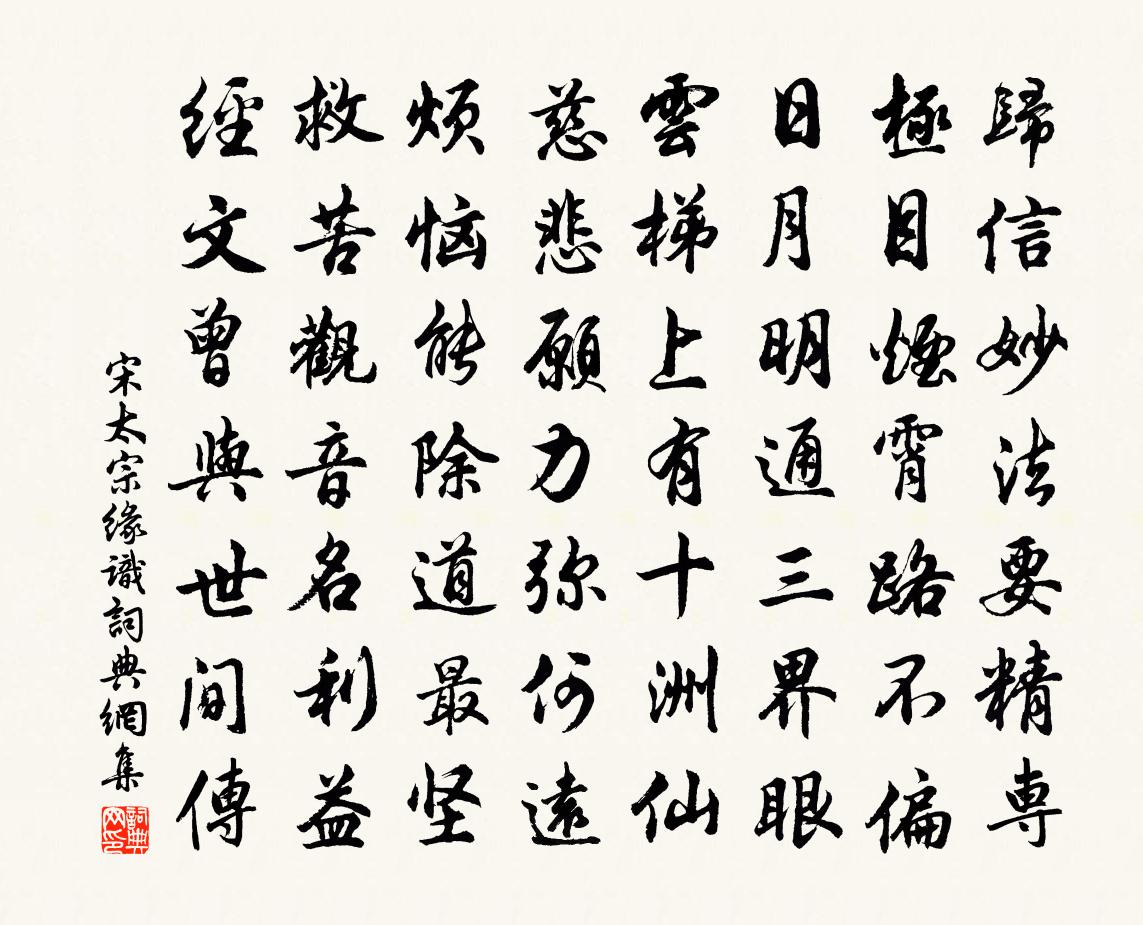 歸信妙法要精専
極目煙霄路不偏
日月明通三界眼
雲梯上有十洲仙
慈悲願力弥何遠
煩惱能除道最坚
救苦觀音名利益
經文曾與世间傳
宋太宗緣識詞典網集
詞典网印